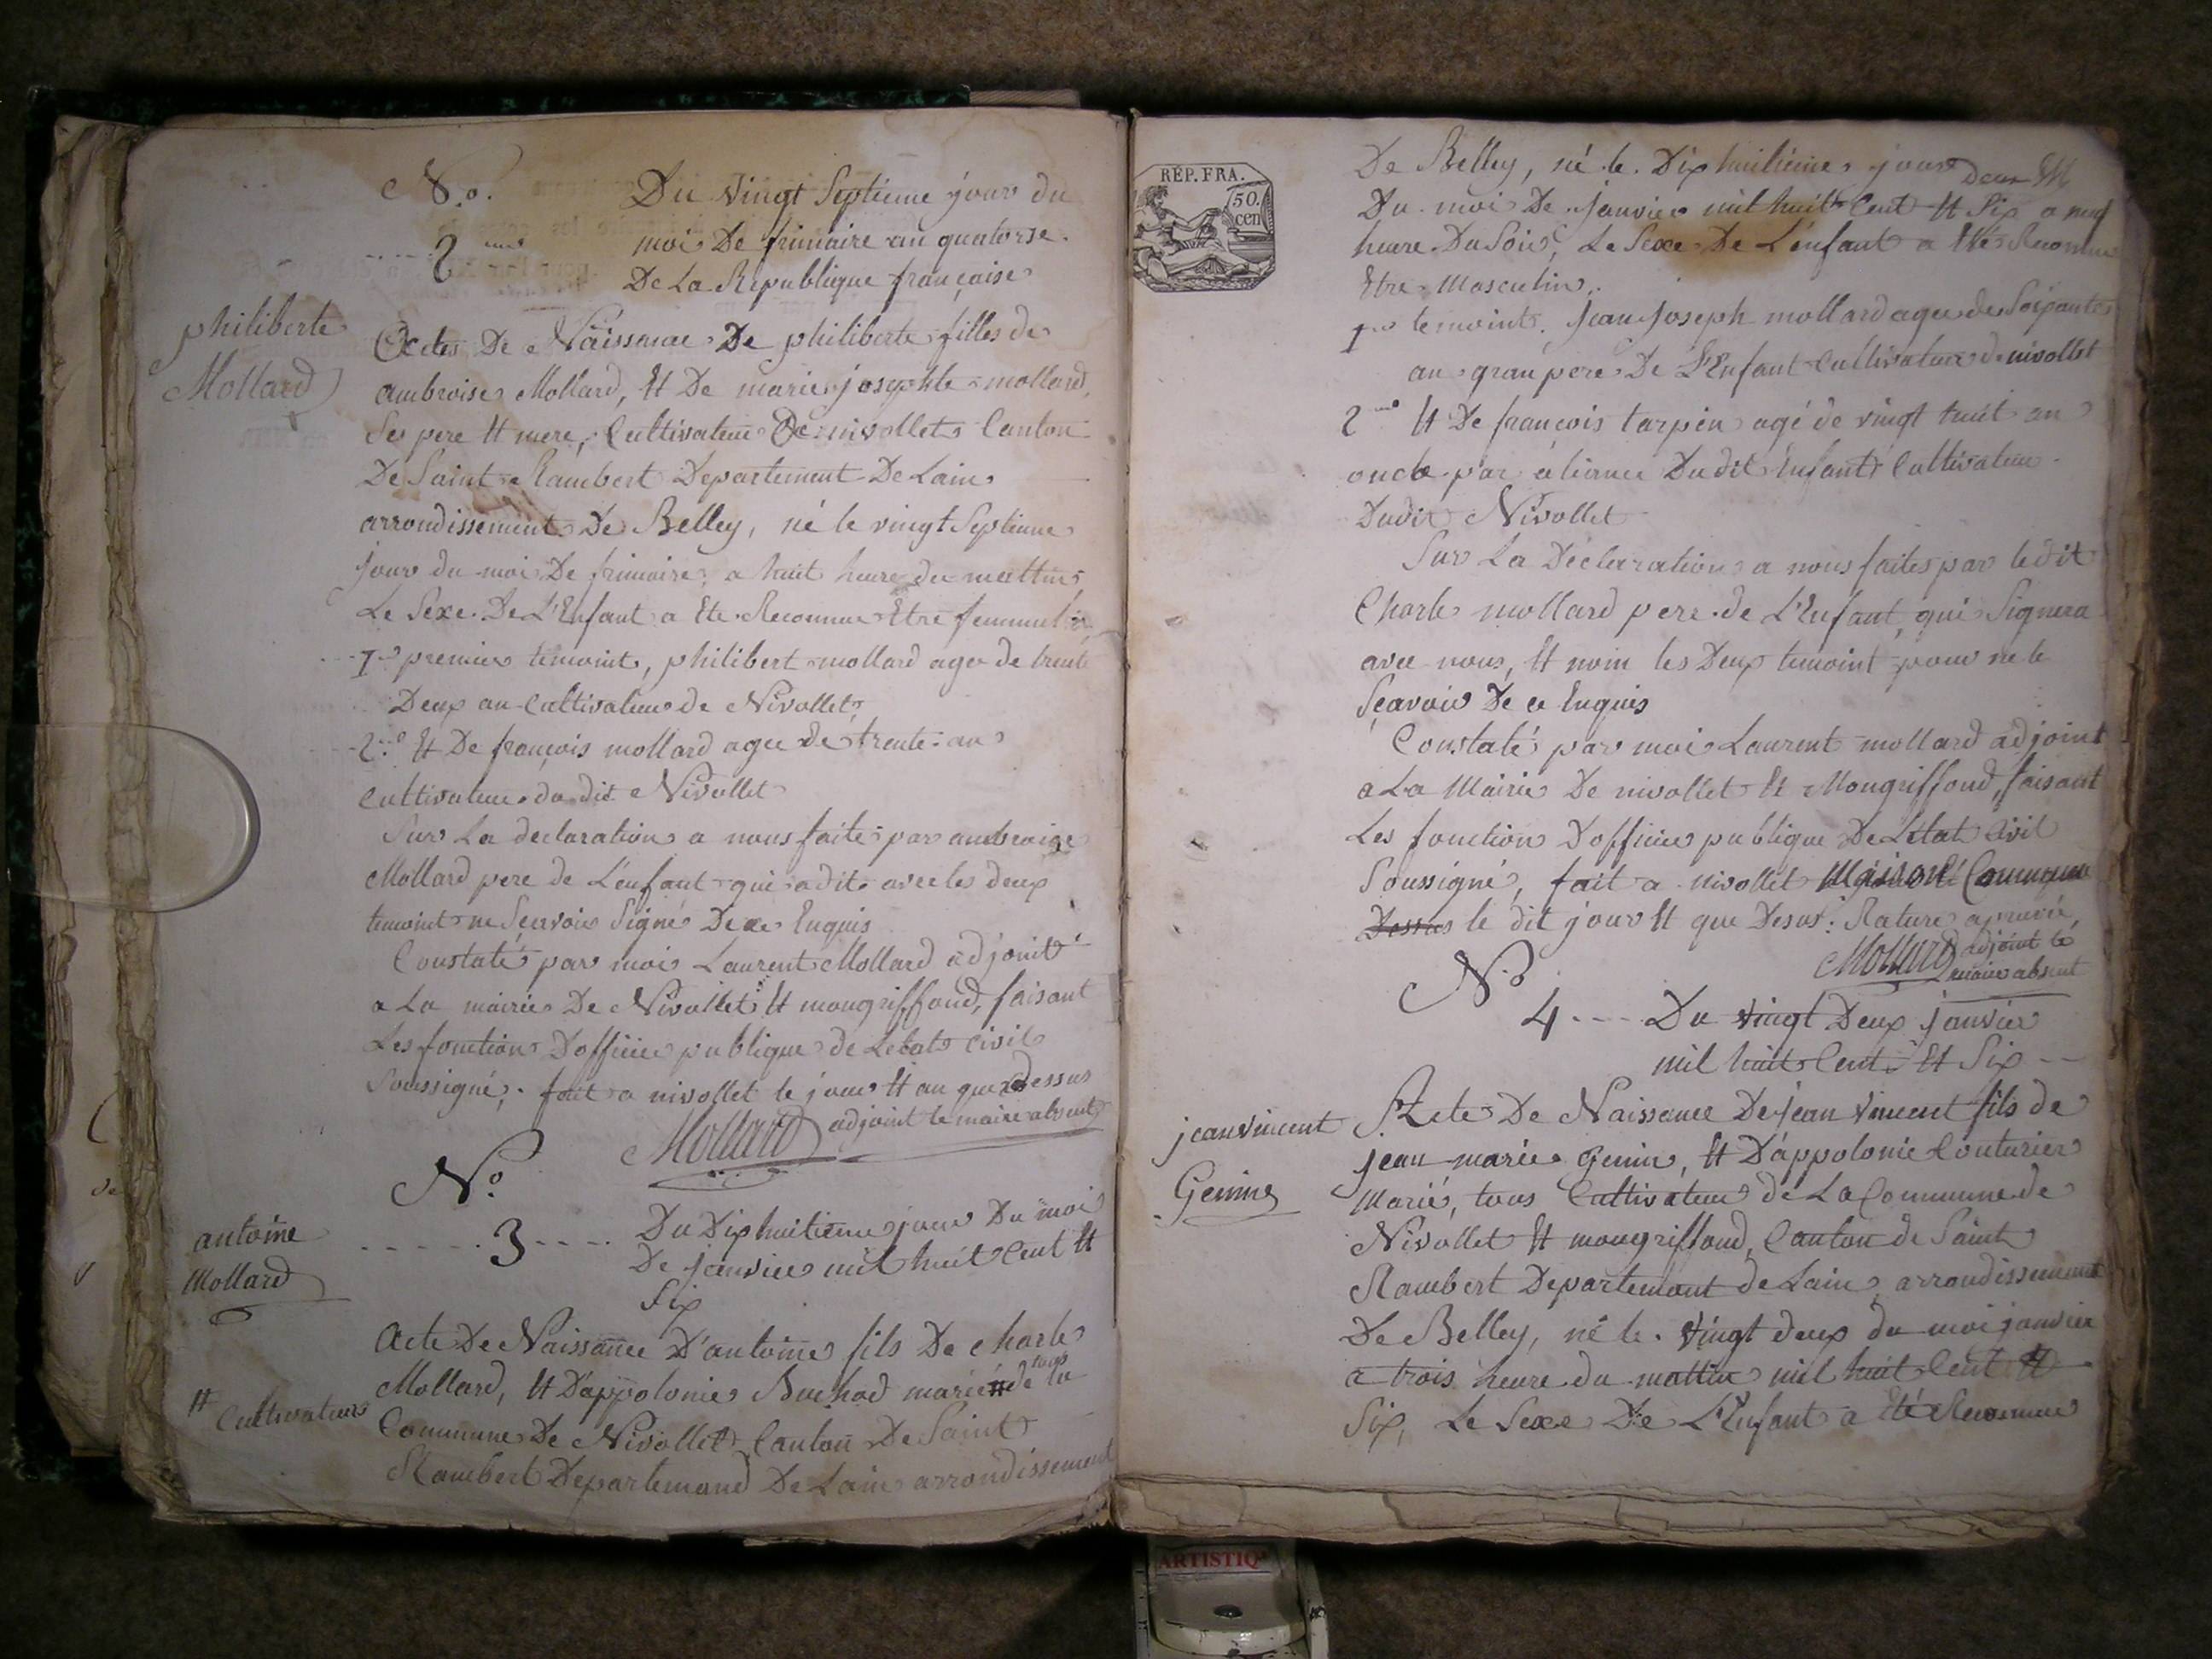 N.o.
Du Vingt Septieme jour du
2eme
moi De frimaire an quatorse.
De La Republique française
philiberte
Mollard
Actes De Naissance De philiberte filles de
ambroise Mollard, Et De marie josephte mollard,
Ses pere Et mere, Cultivateur De nivollet Canton
De Saint Rambert Departement De Lain
arrondissement De Belley, né le vingt Septieme
jour du moi De frimaire, a huit heure du mattin,
Le Sexe De L'Enfant a Ete Reconnue Etre femmelin
1er premier temoint, philibert mollard agee de trente
Deux an Cultivateur de Nivollet,
2e Et De françois mollard agee de trente an
Cultivateur du dit Nivollet
Sur La declaration a nous faite par ambroise
Mollard pere de L'enfant qui a dit avec les deux
temoint ne Scavoir Signé De ce Enquis
Constaté par moi Laurent Mollard adjoint
a La mairie De Nivollet Et mongriffond, faisant
Les fonction D'officier publique de L'etat Civil
Soussigné, fait a nivollet le jour Et an que dessus
Mollard adjoint le maire absent
N.o
antoine
Mollard
3
Du Dixhuitieme jour Du moi
De janvier mil huit Cent Et
Six
Acte De Naissance D'antoine fils De Charle
Mollard, Et D'appolonie Buchod marié # tous de la
# Cultivateurs
Commune De Nivollet Canton De Saint
Rambert Departemand De Lain arrondissement
RÉP. FRA.
50.
cen
De Belley, né le Dix huitieme jour
Du moi De janvier mil huit Cent Et Six a neuf
heure Du Soir, Le Sexe De L'enfant a Eté Reconnue
Etre Masculin.
1er temoint, jean joseph mollard agee de Soixante
an granpere De L'Enfant Cultivateur de nivollet
2eme Et De françois tarpin agé de vingt huit an
oncle par aliance Dudit Enfant Cultivateur
Dudit Nivollet
Sur La Déclaration a nous faites par le dit
Charle mollard pere de L'Enfant, qui Signera
avec nous, Et noin les Deux temoint pour ne le
Sçavoir De ce Enquis
Constaté par moi Laurent mollard adjoint
a La Mairie De nivollet Et Mongriffond, faisant
Les fonction D'officier publique De L'etat Civil
Soussigné, fait a nivollet Maison Commune
Dessus le dit jour Et que Desus: Rature
Mollard adjoint le
maire absent
N.o
4 Du vingt Deux janvier
mil huit Cent Et Six
jeanvincent
Genin
Acte De Naissance De jean Vincent fils de
jean marie Genin, Et D'appolonie Couturier
Marié, tous Cultivateur de La Commune de
Nivollet Et mongriffond, Canton de Saint
Rambert Departemant de Lain, arrondissement
De Belley, né le vingt deux du moi janvier
a trois heure du mattin mil huit Cent Et
Six, Le Sexe De L'Enfant a Eté Reconnue
ARTISTIQ